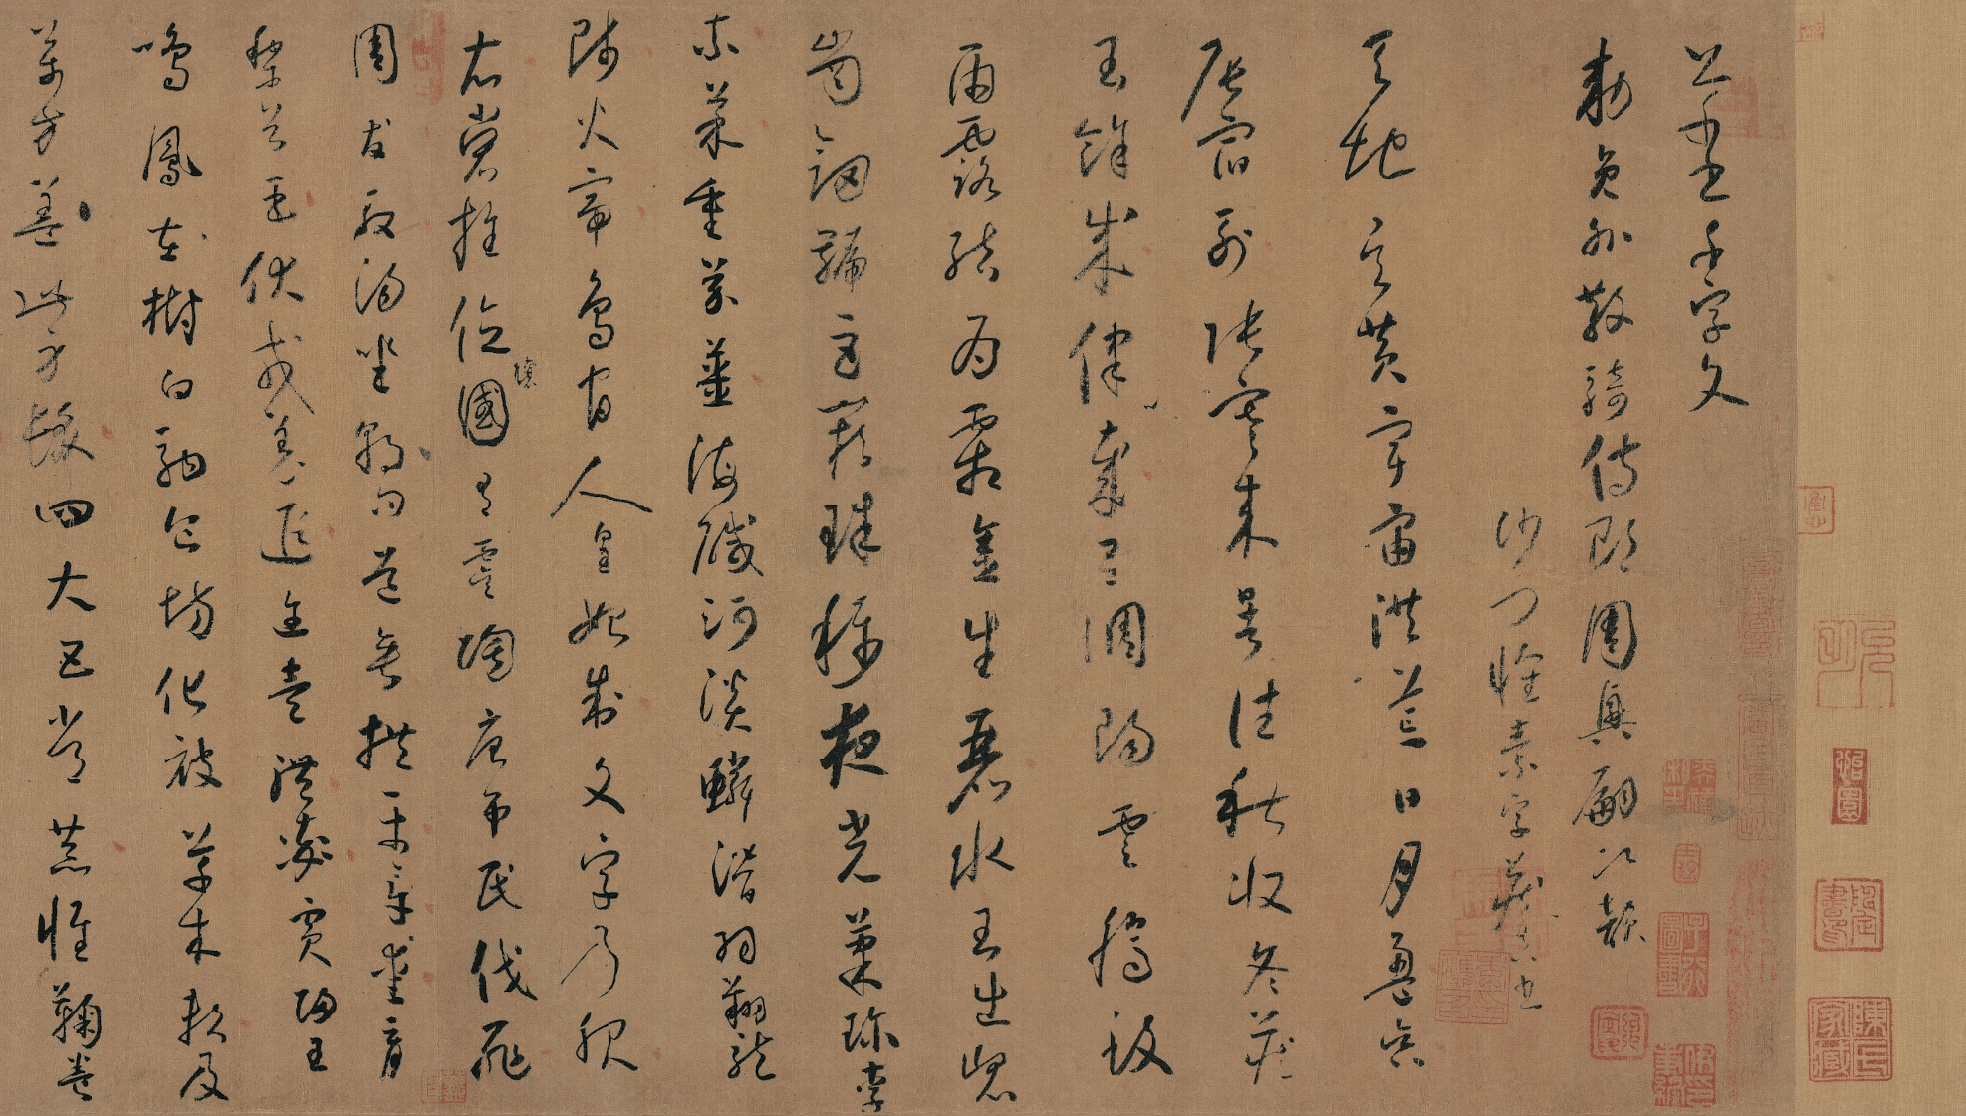 千字文
勅員外散騎侍郎周興嗣次韻
沙門懷素字藏真
天地玄黃宇宙洪荒日月盈昃
辰宿列張寒來暑往秋收冬藏
閏餘成律歲呂調陽雲騰致
雨露結為霜金生麗水玉出崐
崗劍號巨闕珠稱夜光菓珍李
柰菜重芥薑海鹹河淡鱗潛羽翔龍
師火帝鳥官人皇始制文字乃服
衣裳推位讓國有虞陶唐弔民伐罪
周發殷湯坐朝問道垂拱平章愛育
黎首臣伏戎羌遐迩壹體率賓歸王
鳴鳳在樹白駒食場化被草木賴及
萬方蓋此身髮四大五常恭惟鞠養